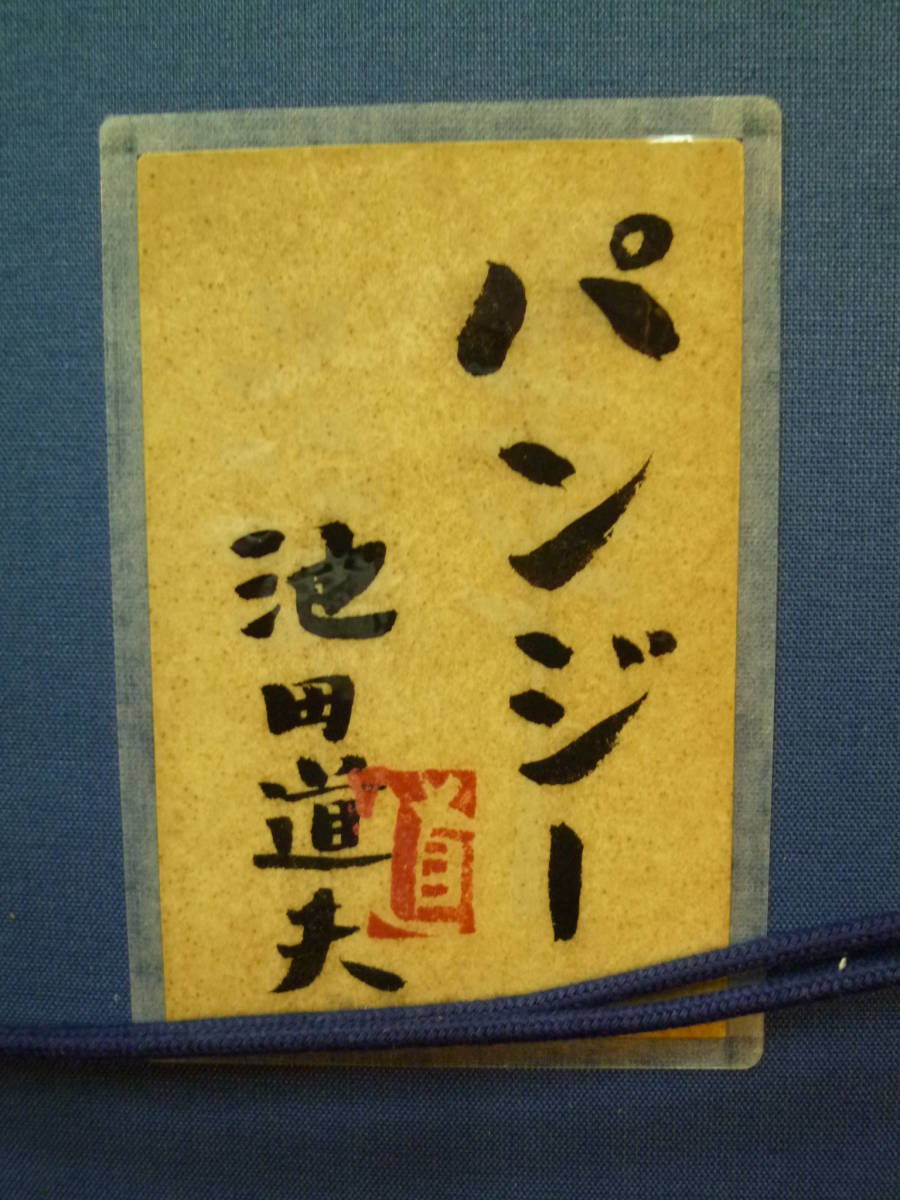 パンジー
池田道夫
道